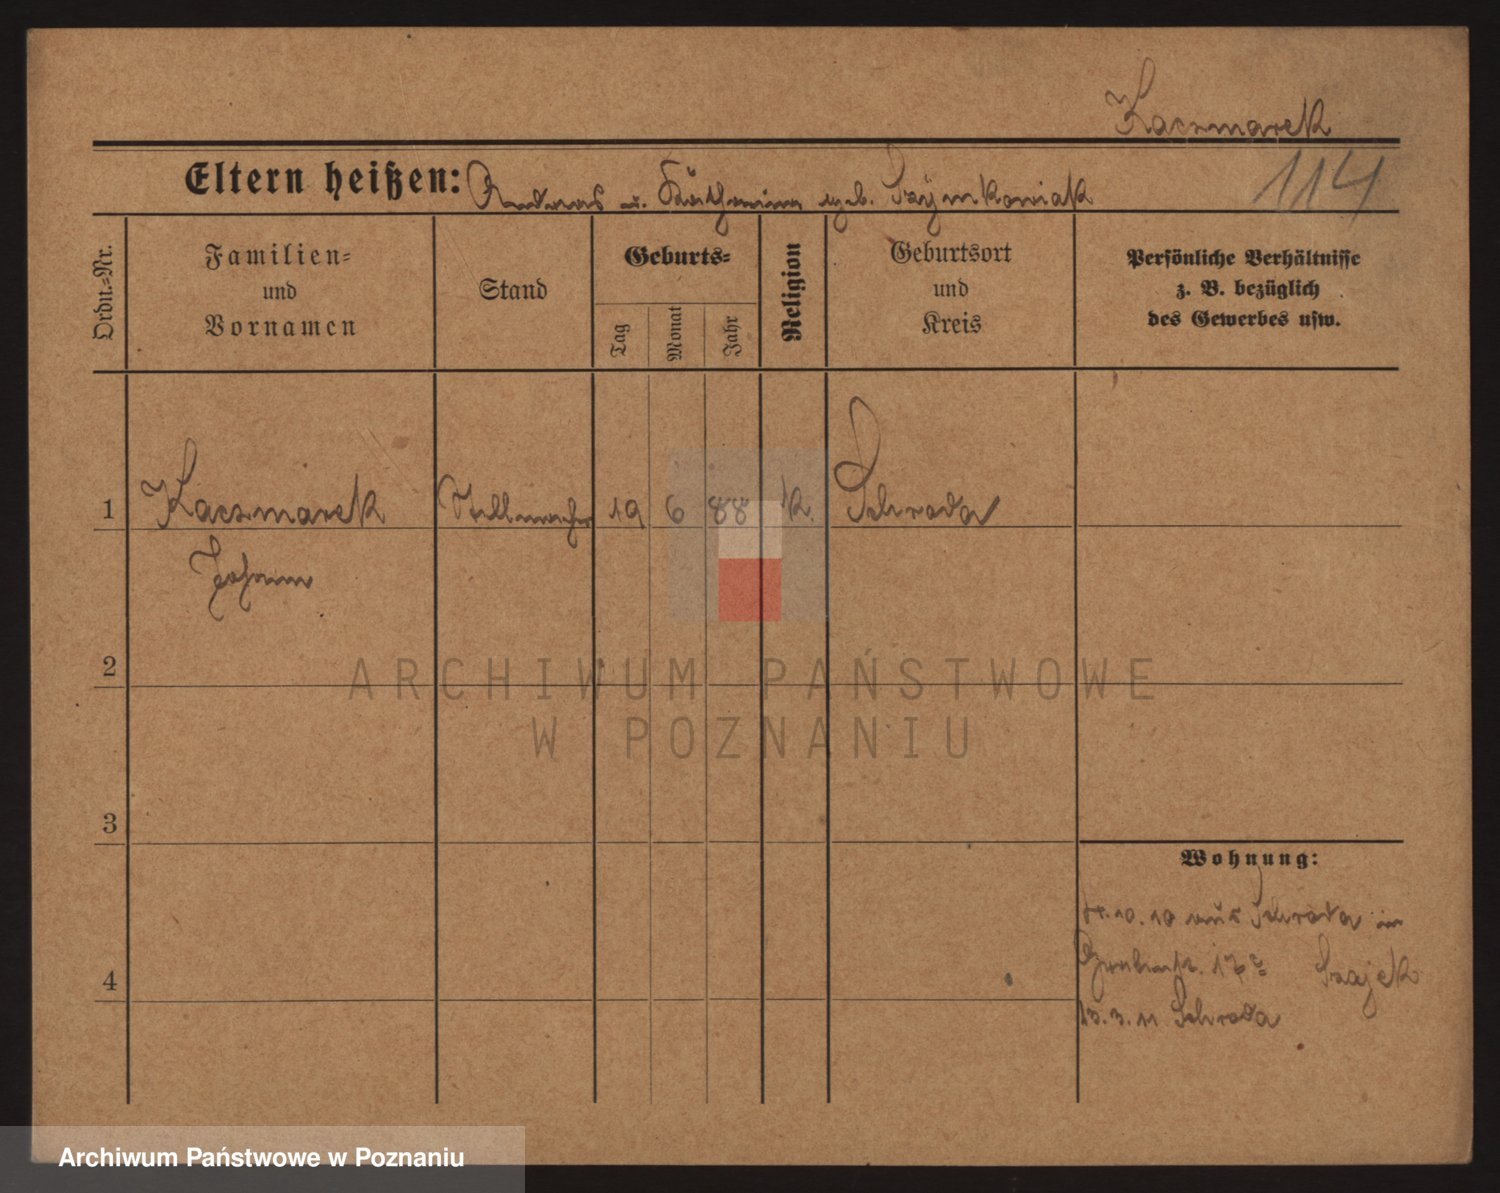 Kaczmarek
Eltern heißen: Andreas u. Katharina geb. Szymkowiak
114
Ordn.=Nr.
Familien=
und
Vornamen
Stand
Geburts=
Tag
Monat
Jahr
Religion
Geburtsort
und
Kreis
Persönliche Verhältnisse
z. B. bezüglich
des Gewerbes usw.
1 Kaczmarek Stellmacher 19 6 88 k. Schroda
Johann
2
ARCHIWUM PAŃSTWOWE
W POZNANIU
3
Wohnung:
10.10 aus Schroda in
Szajek
4
13.3.11 Schroda
Archiwum Państwowe w Poznaniu